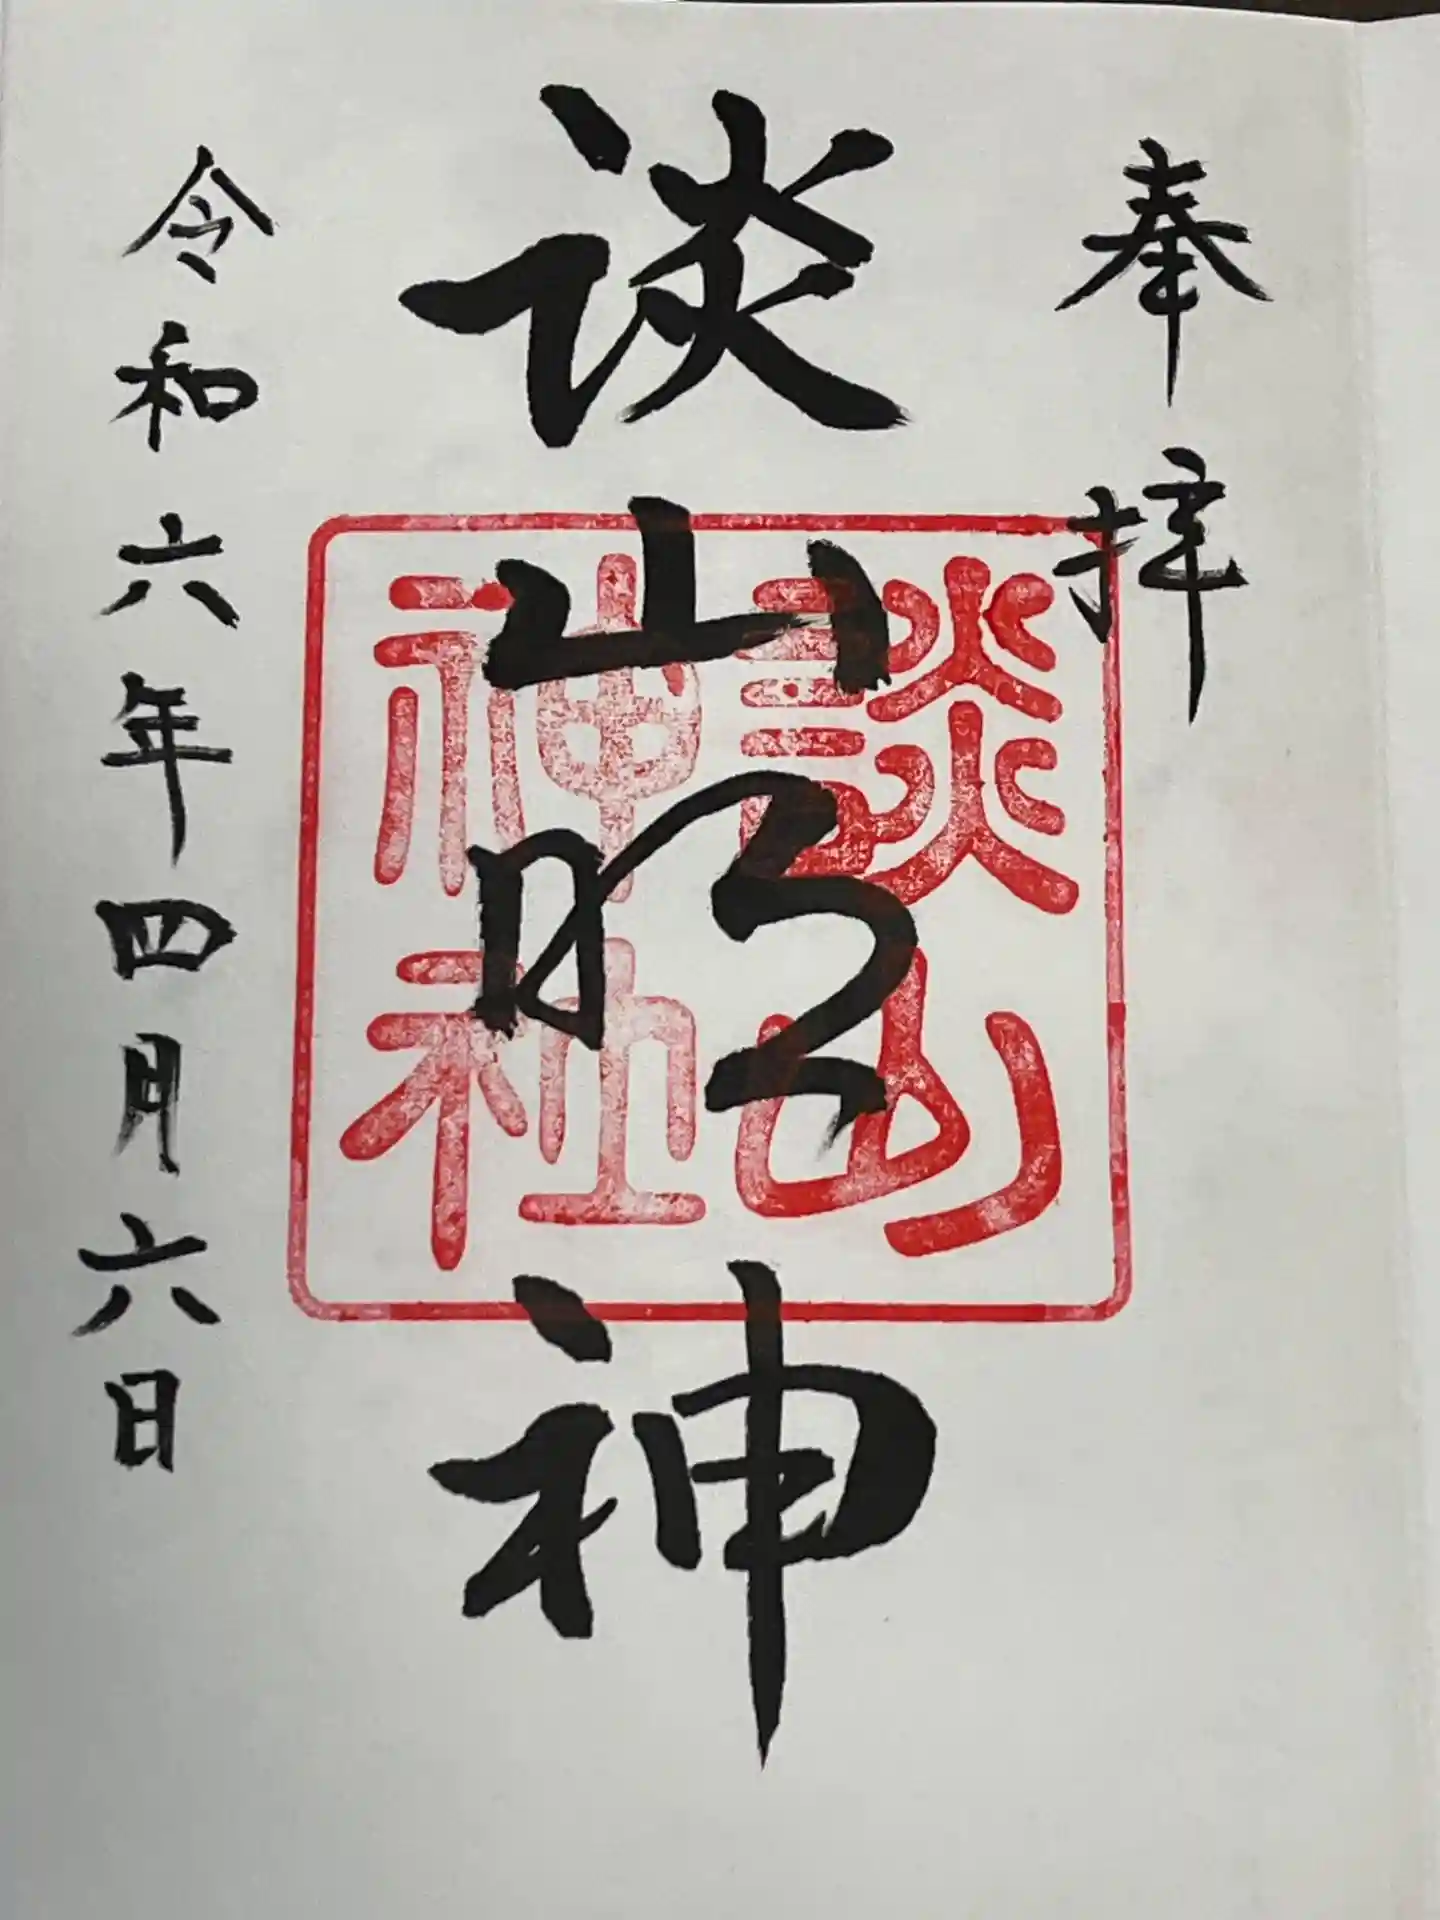 奉拝
談山明神
談山
神社
令和六年四月六日